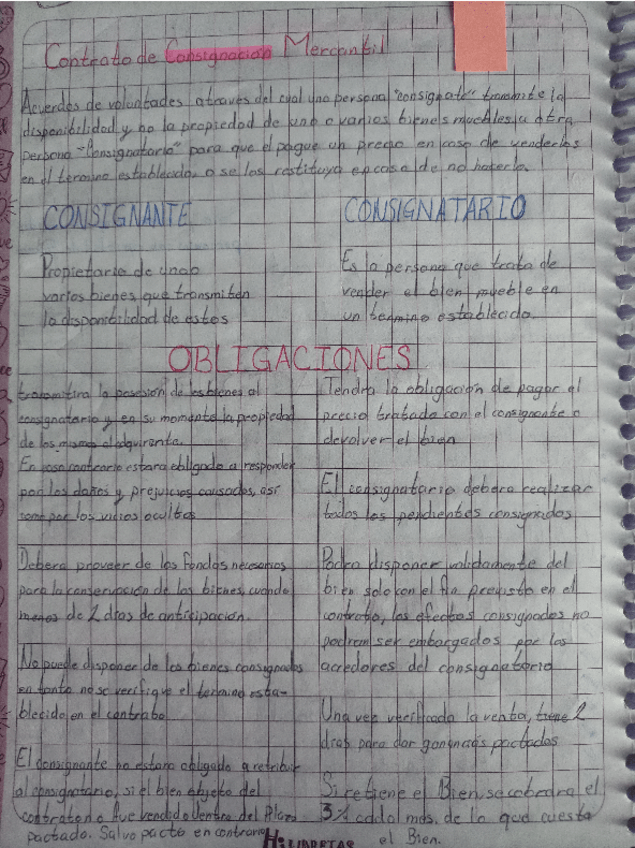 Contrato de Consignación Mercantil
Acuerdos de voluntades atraves del cual una persona "consignate" transmite la
disponibilidad y no la propiedad de uno o varios bienes muebles, a otra
persona "Consignatario" para que el pague un precio en caso de venderlos
en el termino establecido, o se los restituya en caso de no hacerlo.
CONSIGNANTE
Propietario de uno o
varios bienes, que transmiten
la disponibilidad de estos
CONSIGNATARIO
Es la persona que trata de
vender el bien mueble en
un termino establecido.
OBLIGACIONES
transmitira la posesión de los bienes al
consignatario y en su momento la propiedad
de los mismo al adquirente.
En caso contrario estara obligado a responder
por los daños y prejuicios causados, asi
como por los vicios ocultos
Debera proveer de los fondos necesarios
para la conservación de los bienes, cuando
menos de 2 dias de anticipación.
No puede disponer de los bienes consignados
en tanto no se verifique el termino esta-
blecido en el contrato
El consignante no estara obligado a retribuir
al consignatario, si el bien objeto del
contrato no fue vendido dentro del Plazo
pactado. Salvo pacto en contrario
Tendra la obligación de pagar el
precio tratado con el consignante o
devolver el bien
El consignatario debera realizar
todos los pendientes consignados
Podra disponer validamente del
bien solo con el fin previsto en el
contrato, los efectos consignados no
podrem ser embargados por los
acredores del consignatario
Una vez verificada la venta, tiene 2
dias para dar ganancias pactados
Si retiene el Bien, se cobrara el
3% addol mas, de lo que cuesta
el Bien.